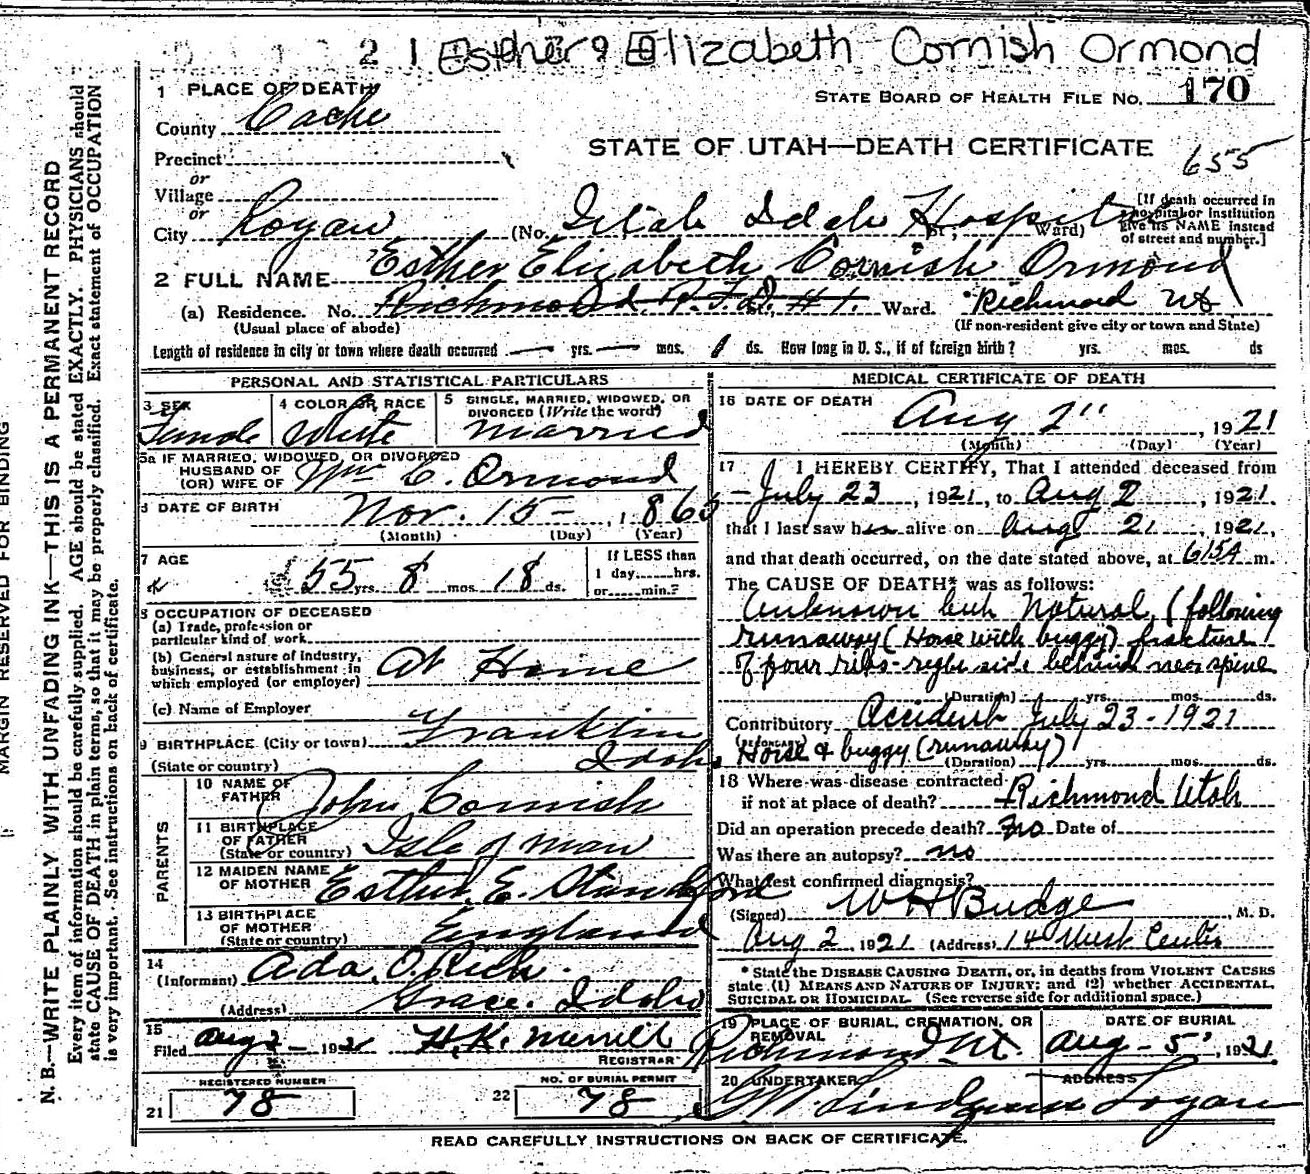 2 1 Esther Elizabeth Cornish Ormond
1 PLACE OF DEATH
STATE BOARD OF HEALTH FILE NO. 170
County Cache
STATE OF UTAH—DEATH CERTIFICATE 655
Precinct
or
Village
or
City Logan (No. Utah Idaho Hospital St., Ward) [If death occurred in a hospital or institution give its NAME instead of street and number.]
2 FULL NAME Esther Elizabeth Cornish Ormond
(a) Residence. No. Richmond R.F.D. #1. St., Ward. Richmond Ut
(Usual place of abode) (If non-resident give city or town and State)
Length of residence in city or town where death occurred — yrs. — mos. 1 ds. How long in U. S., if of foreign birth? yrs. mos. ds
PERSONAL AND STATISTICAL PARTICULARS
3 SEX Female
4 COLOR OR RACE White
5 SINGLE, MARRIED, WIDOWED, OR DIVORCED (Write the word) Married
5a IF MARRIED, WIDOWED, OR DIVORCED
HUSBAND OF
(OR) WIFE OF Wm C. Ormond
6 DATE OF BIRTH Nov. 15 – , 1865
(Month) (Day) (Year)
7 AGE 55 yrs. 8 mos. 18 ds.
If LESS than
1 day......hrs.
or......min.?
8 OCCUPATION OF DECEASED
(a) Trade, profession or
particular kind of work
(b) General nature of industry,
business, or establishment in
which employed (or employer) At Home
(c) Name of Employer
9 BIRTHPLACE (City or town) Franklin
(State or country) Idaho
PARENTS
10 NAME OF FATHER John Cornish
11 BIRTHPLACE OF FATHER (State or country) Isle of Man
12 MAIDEN NAME OF MOTHER Esther E. Standford
13 BIRTHPLACE OF MOTHER (State or country) England
14 (Informant) Ada O. Rich.
(Address) Grace, Idaho
15 Filed Aug 2 – 1921 H.K. Merrill
REGISTRAR
REGISTERED NUMBER
21 78
NO. OF BURIAL PERMIT
22 78
MEDICAL CERTIFICATE OF DEATH
16 DATE OF DEATH Aug 2" , 1921
(Month) (Day) (Year)
17 I HEREBY CERTIFY, That I attended deceased from
July 23 , 1921, to Aug 2 , 1921
that I last saw her alive on Aug 2 , 1921,
and that death occurred, on the date stated above, at 615A m.
The CAUSE OF DEATH* was as follows:
Unknown but Natural (following
runaway (Horse with buggy) fracture
of four ribs-right side behind near spine
(Duration) yrs. mos. ds.
Contributory Accident July 23-1921
(SECONDARY) Horse & buggy (runaway)
(Duration) yrs. mos. ds.
18 Where was disease contracted
if not at place of death? Richmond Utah
Did an operation precede death? no Date of
Was there an autopsy? no
What test confirmed diagnosis?
(Signed) W H Budge , M. D.
Aug 2, 1921 (Address) 14 West Center
* State the DISEASE CAUSING DEATH, or, in deaths from VIOLENT CAUSES
state (1) MEANS AND NATURE OF INJURY; and (2) whether ACCIDENTAL,
SUICIDAL OR HOMICIDAL. (See reverse side for additional space.)
19 PLACE OF BURIAL, CREMATION, OR REMOVAL Richmond Ut.
DATE OF BURIAL Aug – 5 , 1921
20 UNDERTAKER
ADDRESS Logan
READ CAREFULLY INSTRUCTIONS ON BACK OF CERTIFICATE.
MARGIN RESERVED FOR BINDING
N. B.—WRITE PLAINLY WITH UNFADING INK—THIS IS A PERMANENT RECORD
Every item of information should be carefully supplied. AGE should be stated EXACTLY. PHYSICIANS should
state CAUSE OF DEATH in plain terms, so that it may be properly classified. Exact statement of OCCUPATION
is very important. See instructions on back of certificate.